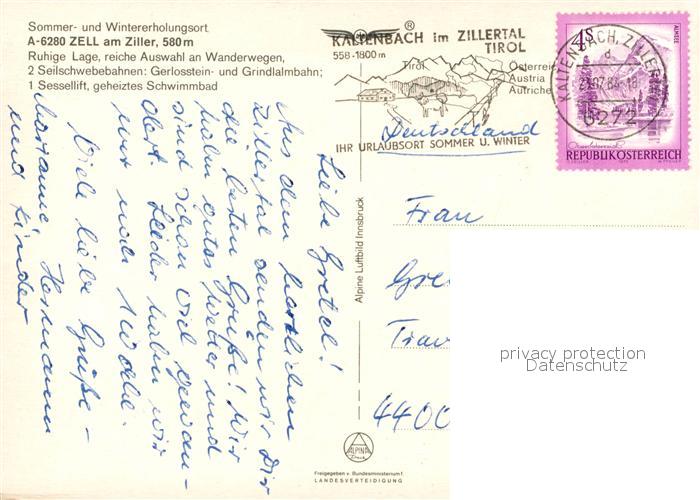 Sommer- und Wintererholungsort
A-6280 ZELL am Ziller, 580 m
Ruhige Lage, reiche Auswahl an Wanderwegen,
2 Seilschwebebahnen: Gerlosstein- und Grindlalmbahn;
1 Sessellift, geheiztes Schwimmbad
Liebe Gretel!
Aus dem herrlichen
Zillertal senden wir Dir
die besten Grüße! Wir
haben gutes Wetter und
sind schon viel gewan-
dert. Leider haben wir
nur noch 1 Woche.
Viele liebe Grüße -
Marianne, Hermann
und Kinder
Alpine Luftbild Innsbruck
ALPINE
Druck
Freigegeben v. Bundesministerium f.
LANDESVERTEIDIGUNG
®
KALTENBACH im ZILLERTAL
TIROL
558-1800 m
Tirol
Österreich
Austria
Autriche
IHR URLAUBSORT SOMMER U. WINTER
Deutschland
KALTENBACH, ZILLERTAL
6272
4 S
ALMSEE
REPUBLIK ÖSTERREICH
Frau
Gre
Trav
4400
privacy protection
Datenschutz